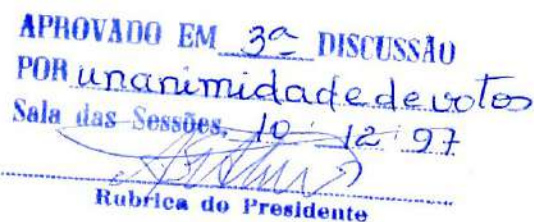 APROVADO EM 3ª DISCUSSÃO
POR unanimidade de votos
Sala das Sessões, 10 12 97
Rubrica do Presidente